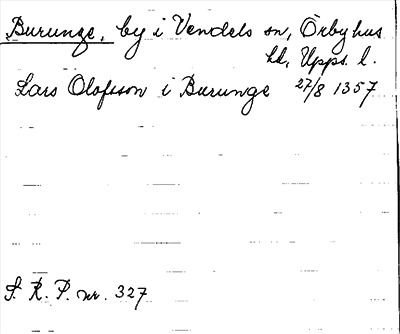 Burunge, by i Vendels sn, Örbyhus
hd, Upps. l.
Lars Olofsson i Burunge 27/8 1357
S. R. P. nr. 327